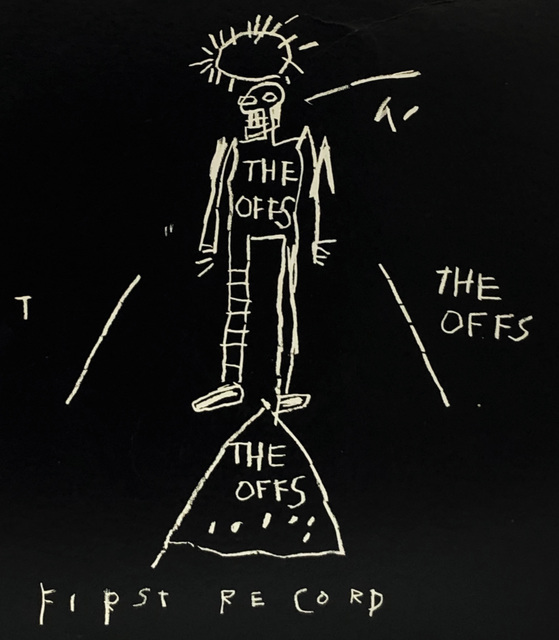 THE
OFFS
T
THE
OFFS
THE
OFFS
FIRST RECORD